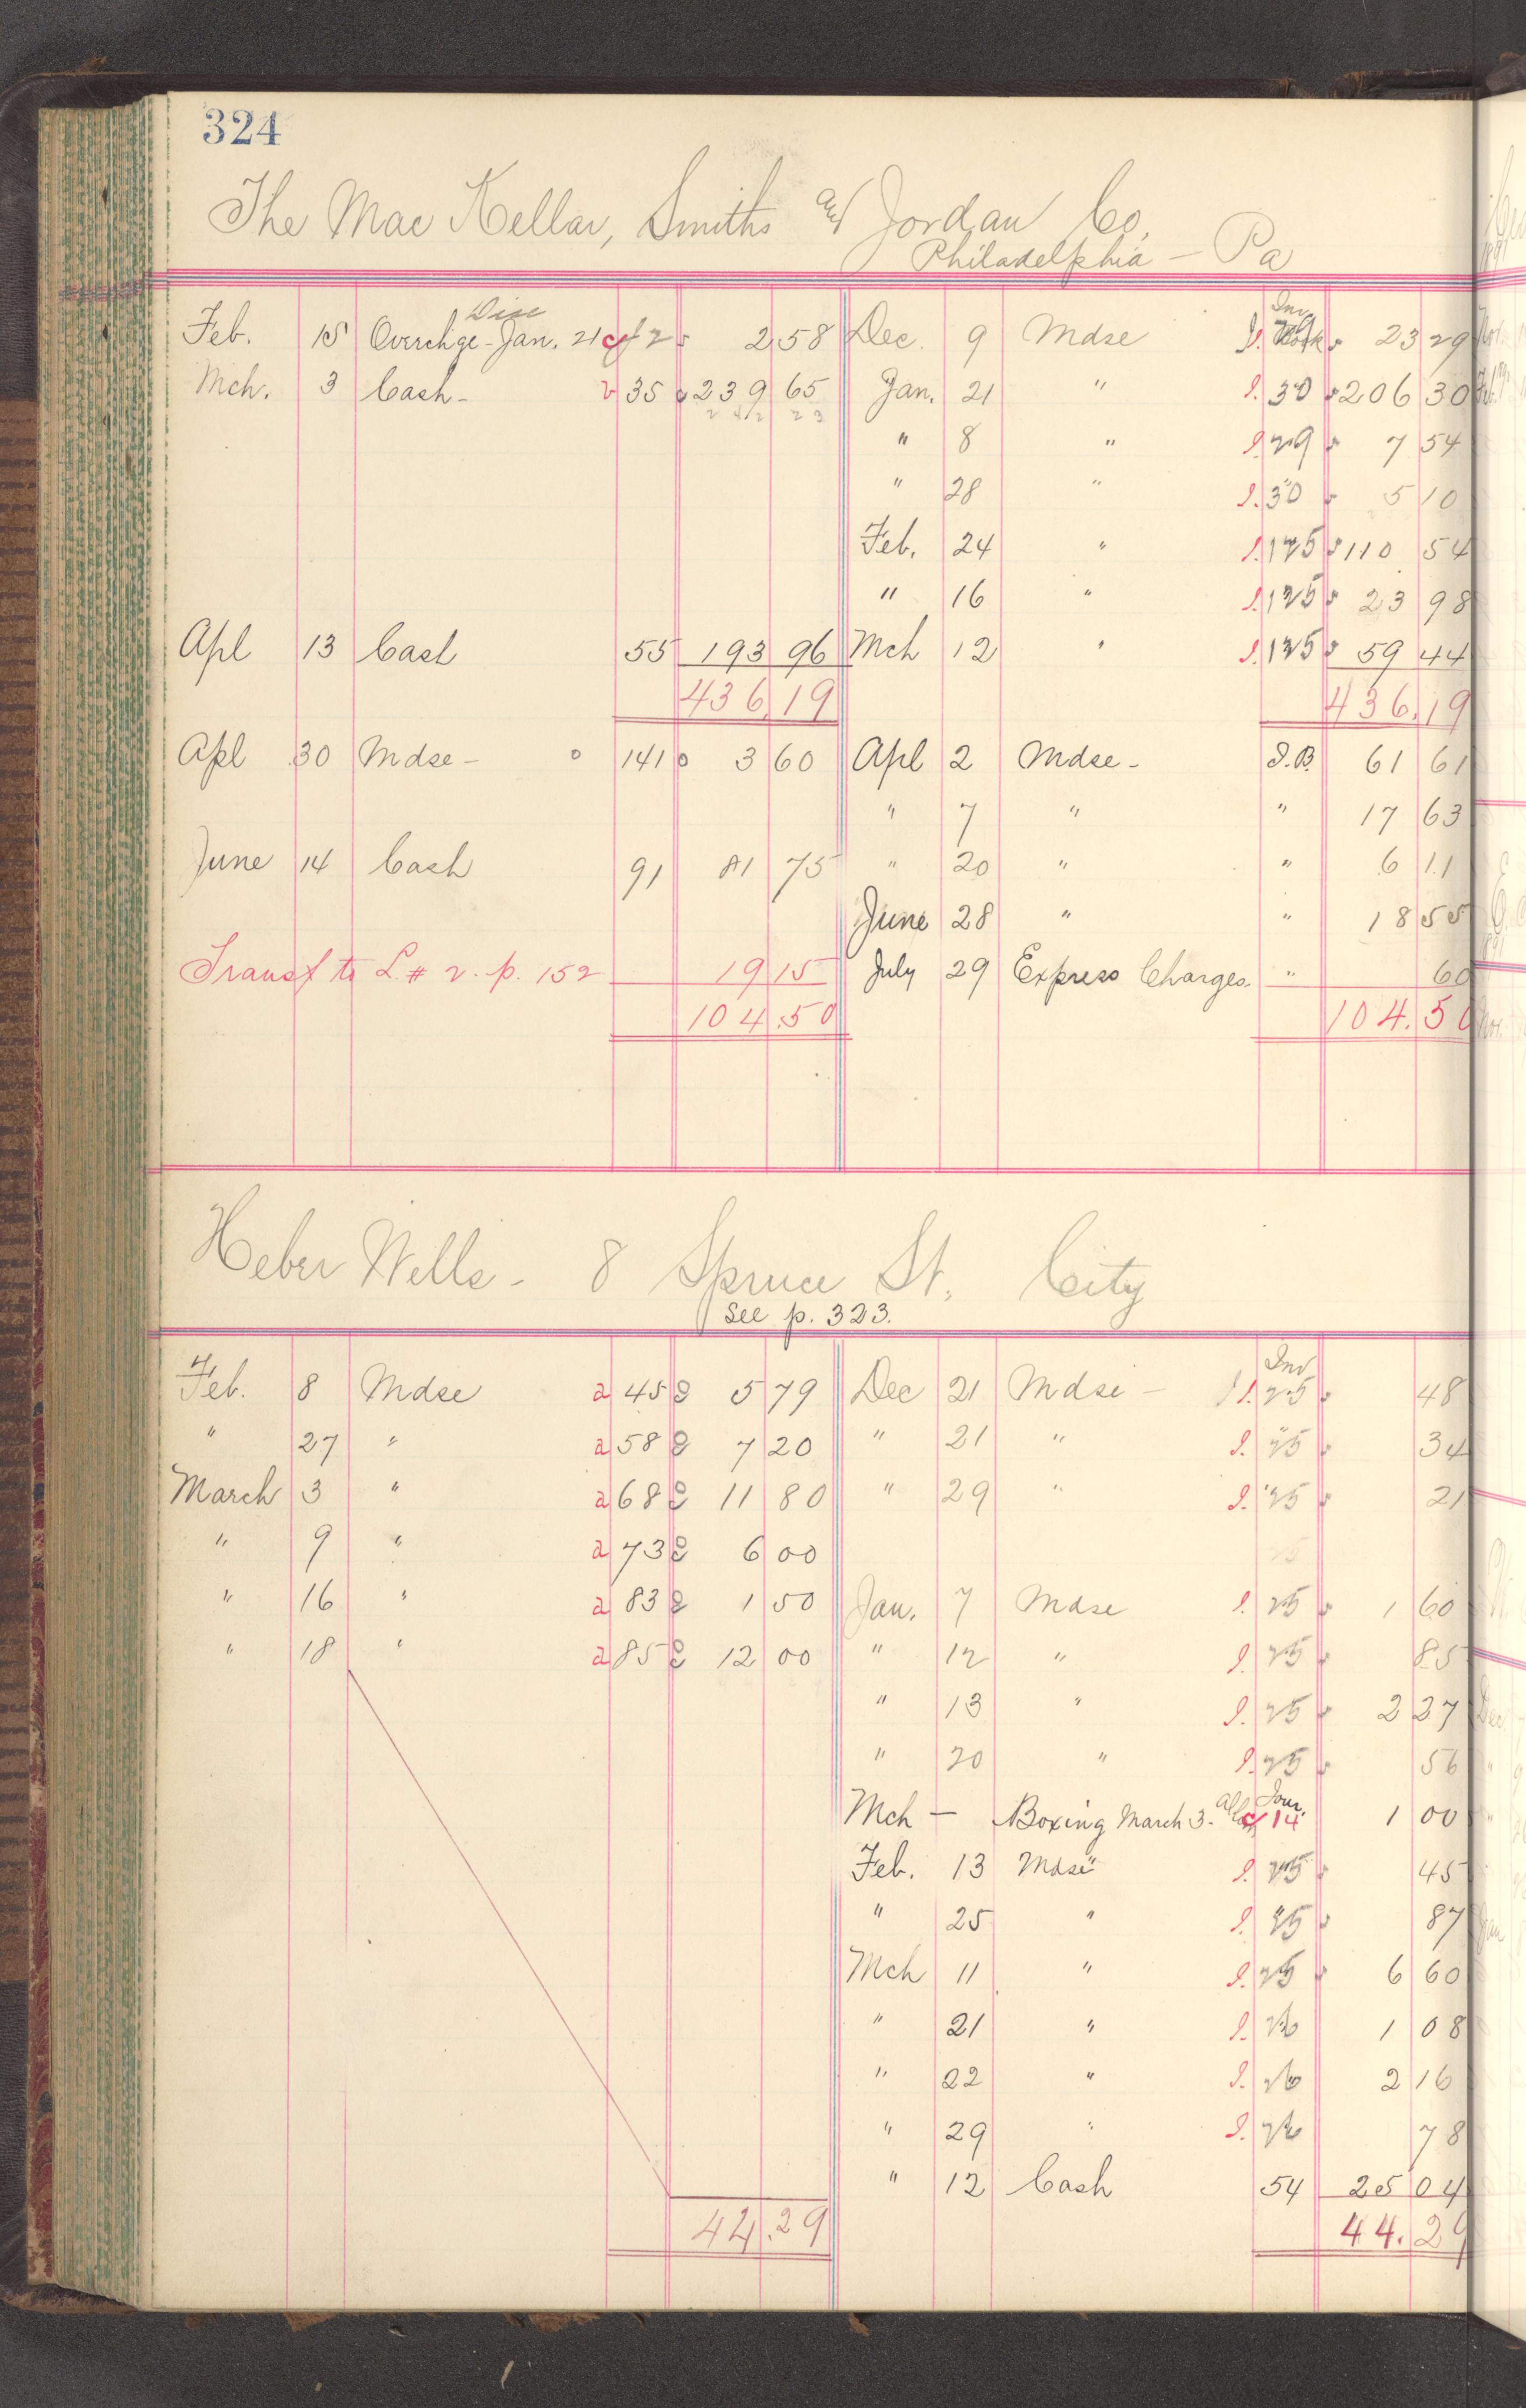 324
The Mac Kellar, Smiths and Jordan Co.
Philadelphia - Pa
Disc Inv
Feb. 15 Overchge - Jan. 21 2 2 58 Dec. 9 Mdse I. 23 29
Mch. 3 Cash - 35 239 65 Jan. 21 " I. 30 206 30
242 23
" 8 " I. 29 7 54
" 28 " I. 30 5 10
Feb. 24 " I. 125 110 54
" 16 " I. 125 23 98
Apl 13 Cash 55 193 96 Mch 12 " I. 125 59 44
436.19 436.19
Apl 30 Mdse - 141 3 60 Apl 2 Mdse - I.B. 61 61
" 7 " " 17 63
June 14 Cash 91 81 75 " 20 " " 6 11
June 28 " " 18 55
Transf to L. # 2. p. 152 19 15 July 29 Express Charges " 60
104.50 104.50
Heber Wells - 8 Spruce St. City
See p. 323.
Inv
Feb. 8 Mdse a 45 5 79 Dec 21 Mdse - I. 25 48
" 27 " a 58 7 20 " 21 " I. 25 34
March 3 " a 68 11 80 " 29 " I. 25 21
" 9 " a 73 6 00
" 16 " a 83 1 50 Jan. 7 Mdse I. 25 1 60
" 18 " a 85 12 00 " 12 " I. 25 85
" 13 " I. 25 2 27
" 20 " I. 25 56
Mch - Boxing March 3. Jour. 14 1 00
Feb. 13 Mdse I. 25 45
" 25 " I. 25 87
Mch 11 " I. 25 6 60
" 21 " I. 26 1 08
" 22 " I. 26 2 16
" 29 " I. 26 78
" 12 Cash 54 25 04
44.29 44.29